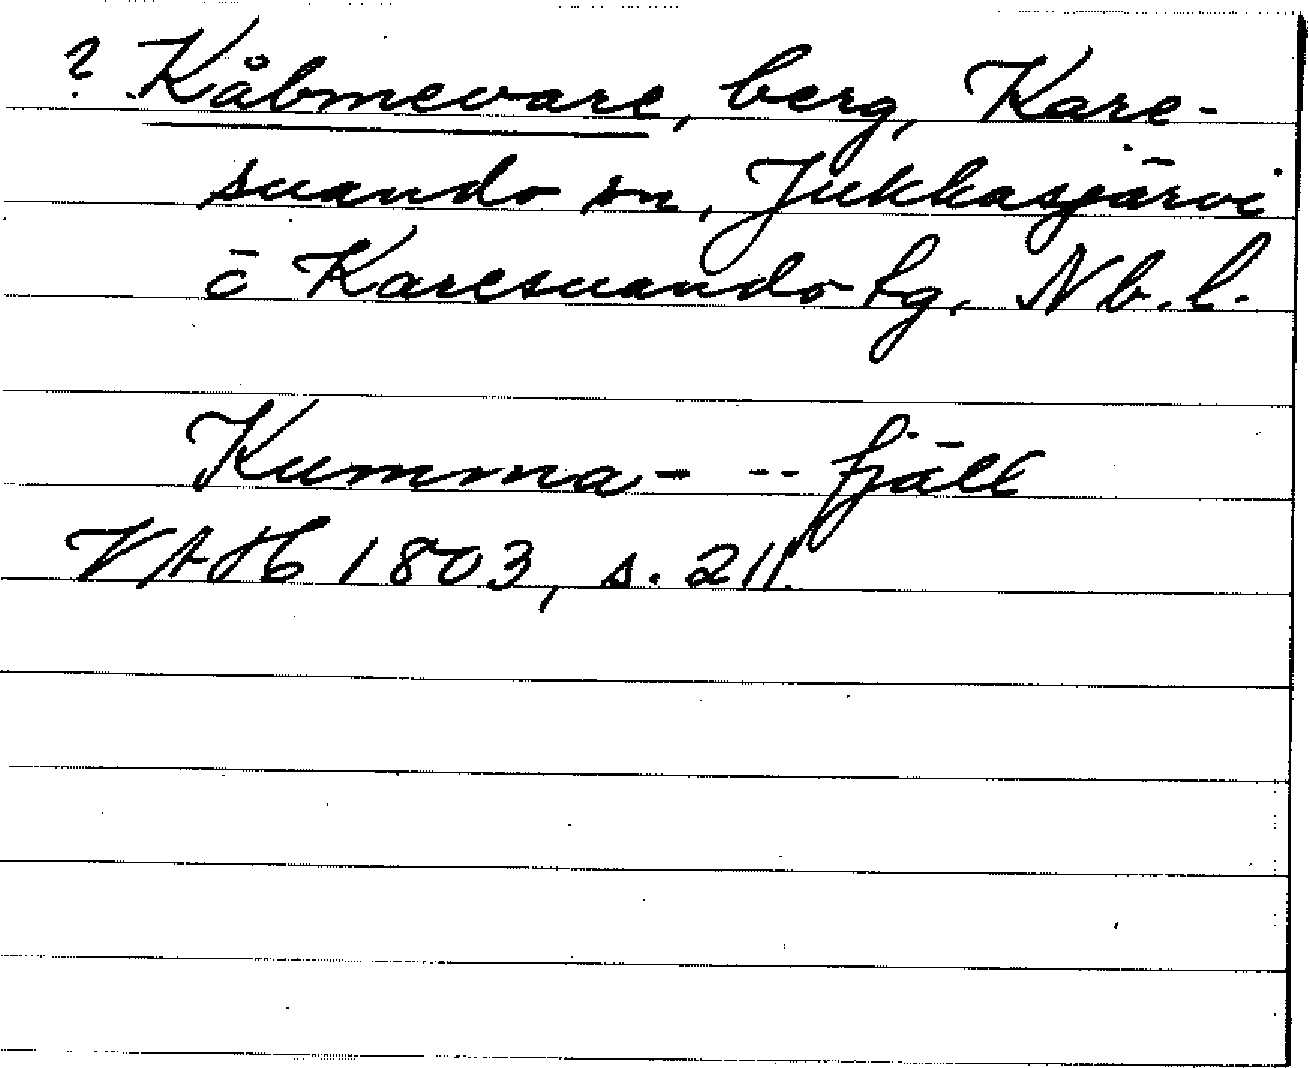 ? Kåbmevare, berg, Kare-
suando sn, Jukkasjärvi
o Karesuando tg, Nb. l.
Kumma- -- fjäll
VAH 1803, s. 211.